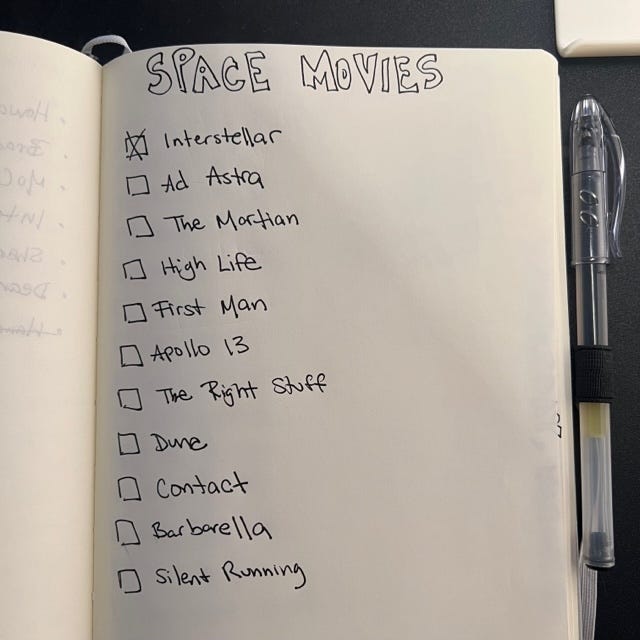 SPACE MOVIES
Interstellar
Ad Astra
The Martian
High Life
First Man
Apollo 13
The Right Stuff
Dune
Contact
Barbarella
Silent Running